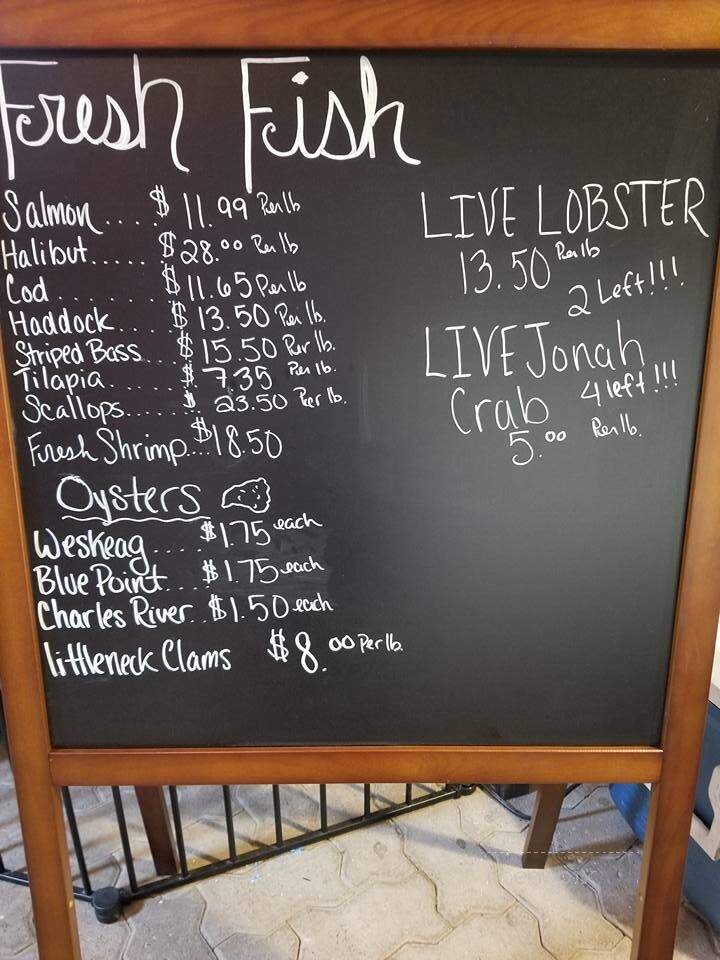 Fresh Fish
Salmon.... $ 11.99 Per lb
Halibut..... $ 28.00 Per lb
Cod.......... $ 11.65 Per lb
Haddock.... $ 13.50 Per lb.
Striped Bass... $ 15.50 Per lb.
Tilapia........ $ 7.35 Per lb.
Scallops....... $ 23.50 Per lb.
Fresh Shrimp... $18.50
Oysters
Weskeag.... $1.75 each
Blue Point... $1.75 each
Charles River.. $1.50 each
littleneck Clams $8.00 Per lb.
LIVE LOBSTER
13.50 Per lb
2 Left!!!
LIVE Jonah
Crab 4 left!!!
5.00 Per lb.